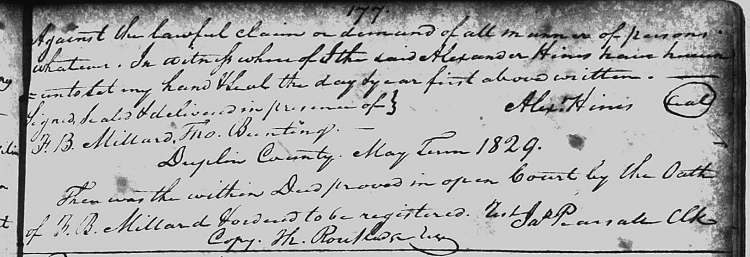 177.
Against the lawful claim or demand of all manner of persons
whatever. In witness whereof I the said Alexander Hines have hereun
=unto set my hand & seal the day & year first above written. —
Signed, sealed & delivered in presence of } Alexr. Hines seal
F. B. Millard, Tho. Bunting. —
Duplin County. May Term 1829.
Then was the within Deed proved in open Court by the Oath
of F. B. Millard & ordered to be registered. Test Jas. Pearsall Clk
Copy. Th. Routledge